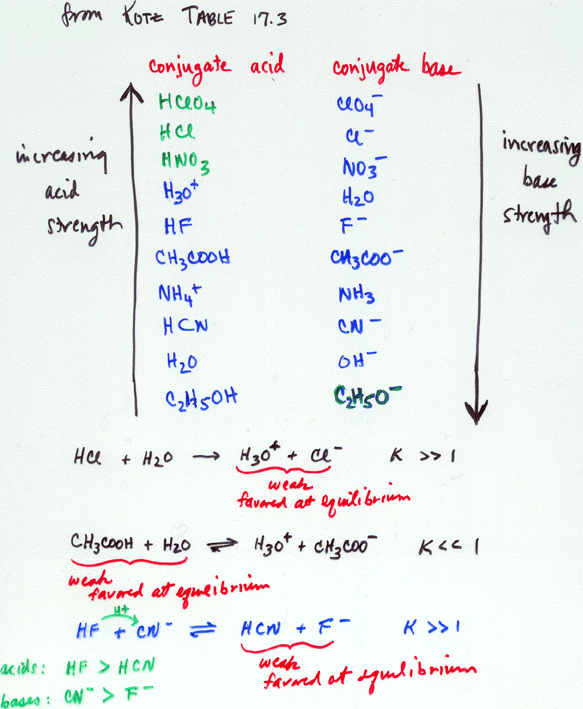 from KOTZ TABLE 17.3
conjugate acid conjugate base
HClO4 ClO4⁻
HCl Cl⁻
HNO3 NO3⁻
H3O⁺ H2O
HF F⁻
CH3COOH CH3COO⁻
NH4⁺ NH3
HCN CN⁻
H2O OH⁻
C2H5OH C2H5O⁻
increasing
acid
strength
increasing
base
strength
HCl + H2O → H3O⁺ + Cl⁻ K >> 1
weak
favored at equilibrium
CH3COOH + H2O ⇌ H3O⁺ + CH3COO⁻ K << 1
weak
favored at equilibrium
H+
HF + CN⁻ ⇌ HCN + F⁻ K >> 1
weak
favored at equilibrium
acids: HF > HCN
bases: CN⁻ > F⁻